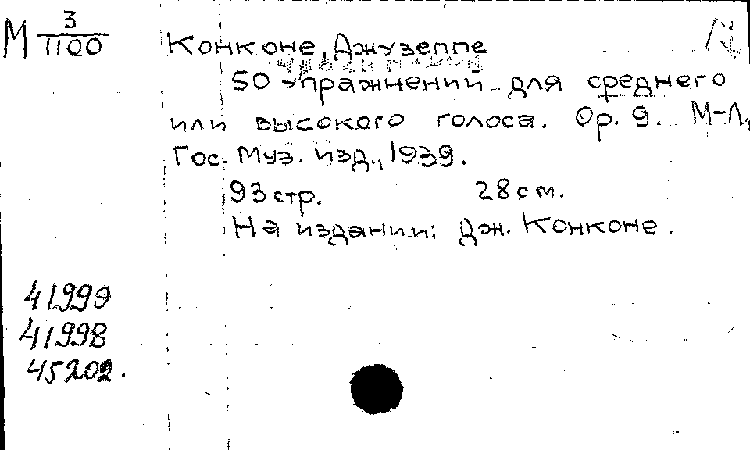 М 3/1100
Конконе, Джузеппе
50 упражнений для среднего
или высокого голоса. Op. 9. М-Л,
Гос. Муз. изд., 1939.
93 стр. 28 см.
На издании: Дж. Конконе.
41999
41998
45202.